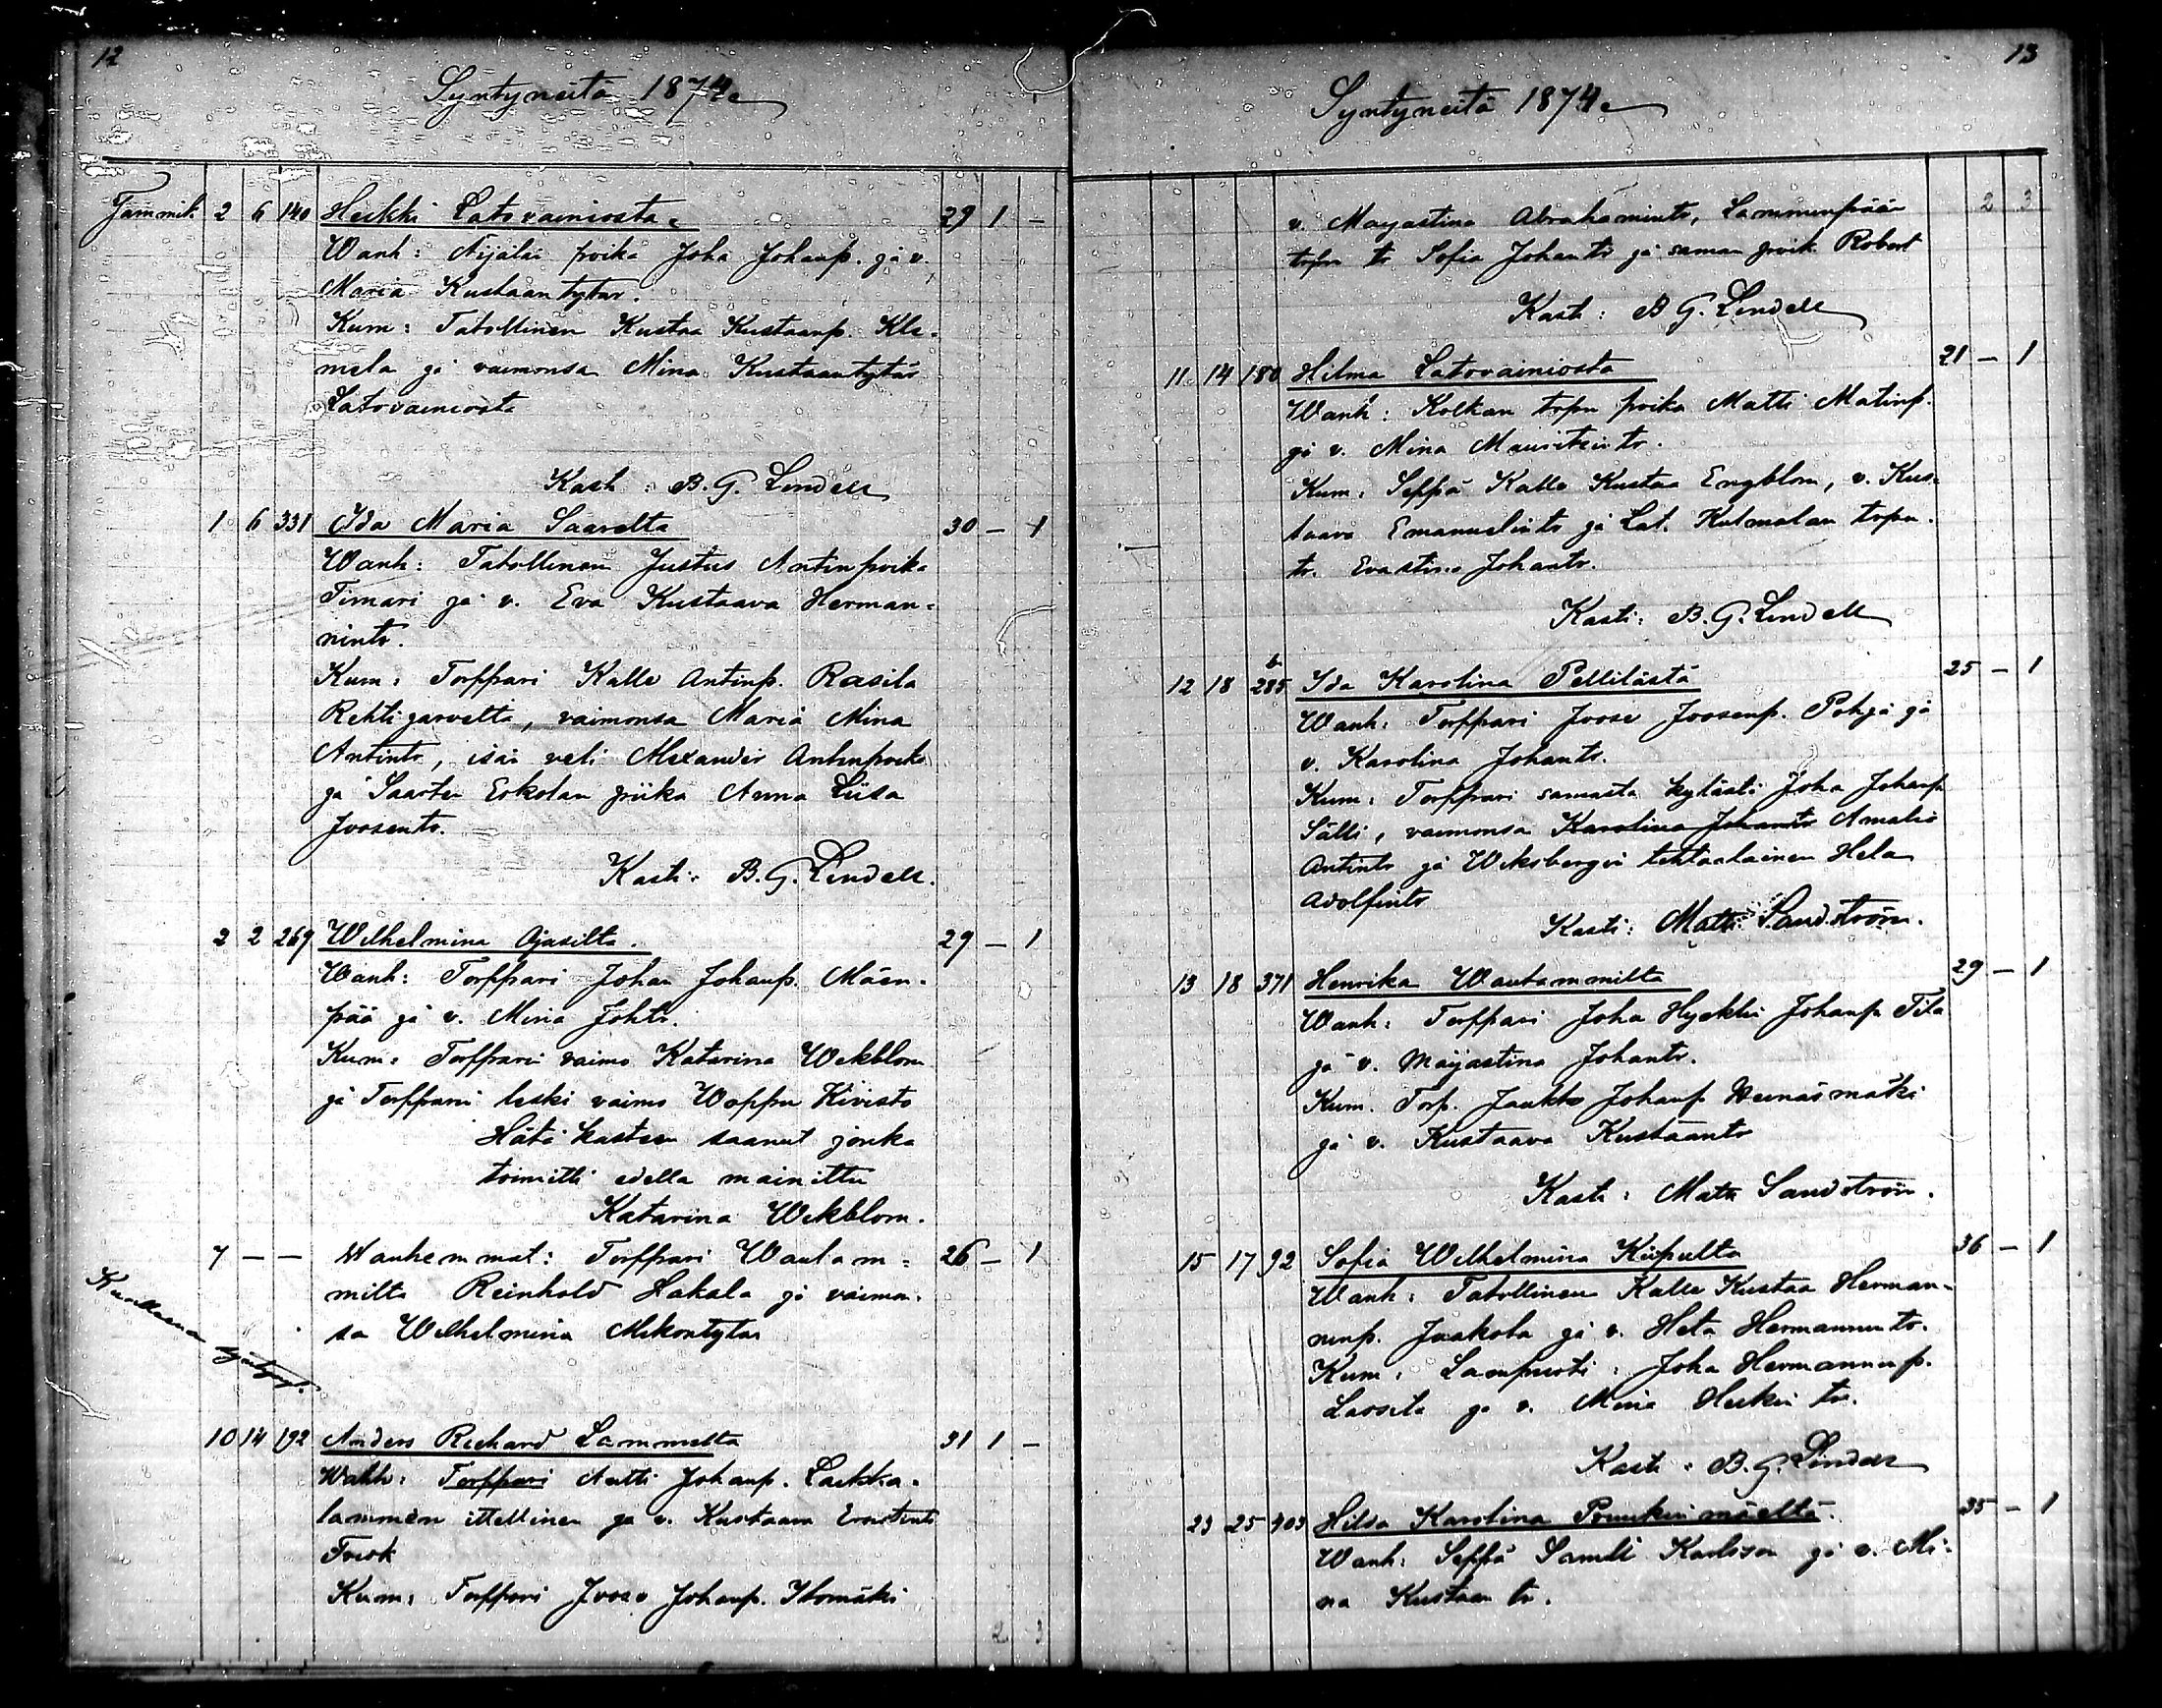 12
Syntyneitä 1874
Tammik. 2 6 140 Heikki Latovainiosta 29 1 -
Wanh: Äijälän poika Joha Johanp. ja v.
Maria Kustaantytär.
Kum: Tatollinen Kustaa Kustaanp. Kle-
mela ja vaimonsa Mina Kustaantytär
Latovainiosta
Kasti: B.G. Lindell
1 6 331 Ida Maria Saarelta 30 - 1
Wanh: Tatollinen Justus Antinpoika
Timari ja v. Eva Kustaava Herman-
nintr.
Kum: Torppari Kalle Antinp. Rasila
Rehtijarvelta, vaimonsa Maria Mina
Antintr, isän veli Alexander Antinpoika
ja Saarten Erkolan piika Anna Liisa
Joosentr.
Kasti: B.G. Lindell.
2 2 269 Wilhelmina Ojasilta. 29 - 1
Wanh: Torppari Johan Johanp. Mäen-
pää ja v. Mina Johtr.
Kum: Torpparin vaimo Katarina Wekblom
ja Torpparin leski vaimo Wappu Kivisto
Hätä kasteen saanut jonka
toimitti edella mainittu
Katarina Wekblom.
7 - - Wanhemmat: Torppari Wautam- 26 - 1
milta Reinhold Hakala ja vaimon-
sa Wilhelmina Mikontytär
Kuolleena syntyny.
10 14 192 Anders Richard Lammelta 31 1 -
Wanh: Torppari Antti Johanp. Laikka-
lammen ittellinen ja v. Kustaava Ernstintr
Frisk
Kum: Torppari Joose Johanp. Isomäki
2 3
13
Syntyneitä 1874
v. Mayastina Abrahamintr, Lammenpään 2 3
torpn tr Sofia Johantr ja saman poik. Robert
Kasti: B G. Lindell
11 14 180 Hilma Latovainiosta 21 - 1
Wanh: Kolkan torpn poika Matti Matinp.
ja v. Mina Mauritzintr.
Kum: Seppä Kalle Kustaa Engblom, v. Kus-
taava Emanuelintr ja Lat. Kulmalan torpn.
tr. Evastina Johantr.
Kasti: B.G. Lindell
12 18 285 b Ida Karolina Pellilästä 25 - 1
Wanh: Torppari Joose Joosenp. Pohja ja
v. Karolina Johantr.
Kum: Torppari samasta kylästä Joha Johanp
Sälli, vaimonsa Karolina Johantr Amalia
Antintr ja Wiksbergin tehtaalainen Hela
Adolfintr
Kasti: Matti Sandström.
13 18 371 Henrika Wautammilta 29 - 1
Wanh: Torppari Joha Hyckki Johanp Tila
ja v. Mayastina Johantr.
Kum. Torp. Jaakko Johanp Heinäsmäki
ja v. Kustaava Kustaantr
Kasti: Matti Sandström.
15 17 92 Sofia Wilhelmina Kiipulta 36 - 1
Wanh: Tatollinen Kalle Kustaa Herman-
ninp. Jaakola ja v. Heta Hermannintr.
Kum: Lampuoti: Joha Hermanninp.
Laosela ja v. Mina Heikin tr.
Kasti: B.G. Lindell
23 25 403 Hilda Karolina Prunkin mäeltä. 35 - 1
Wanh: Seppä Samuli Karlsson ja v. Mi-
na Kustaan tr.